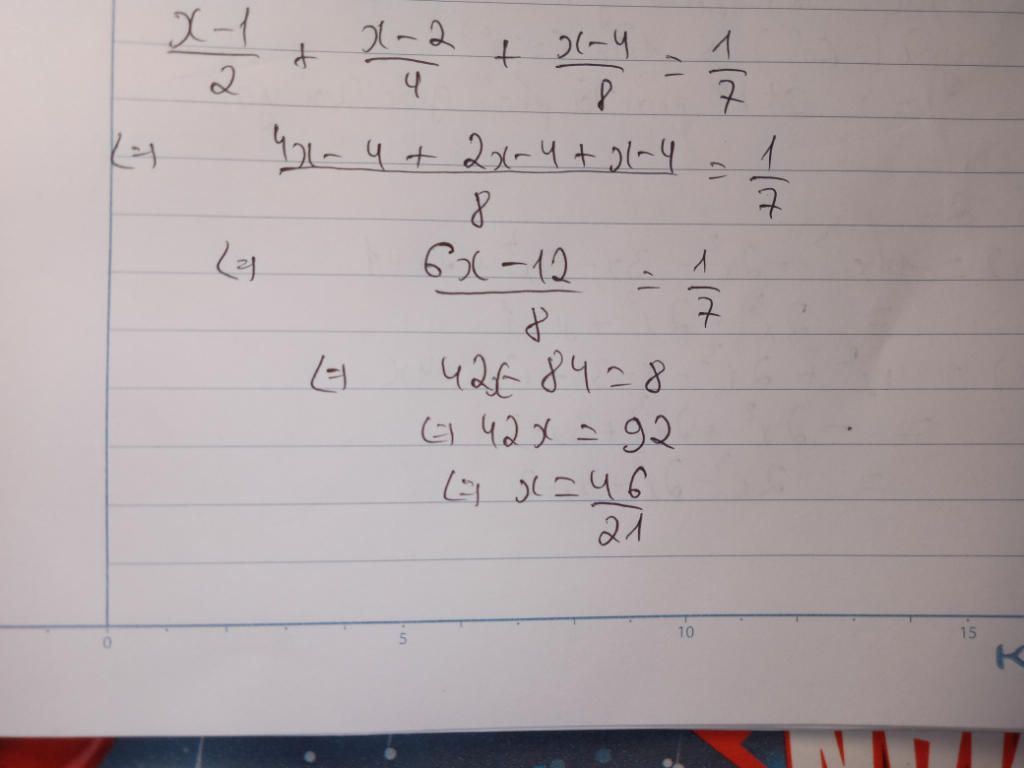 (x-1)/2 + (x-2)/4 + (x-4)/8 = 1/7
<=> (4x-4+2x-4+x-4)/8 = 1/7
<=> (6x-12)/8 = 1/7
<=> 42x-84=8
<=> 42x=92
<=> x=46/21
0 5 10 15